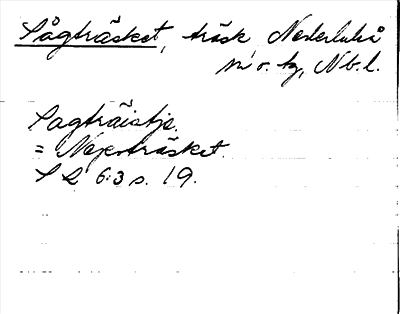 Sågträsket, träsk Nederluleå
sn o. tg, Nb. l.
Sagträistje.
= Nejerträsket.
S L 6:3 s. 19.